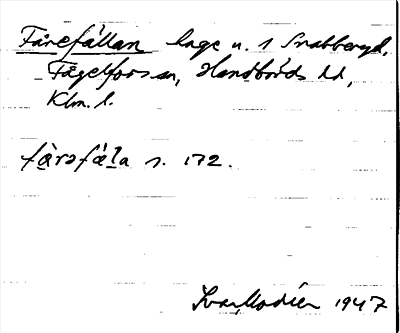 Fårefällan hage u. 1 Snabberyd,
Fågelfors sn, Handbörds hd,
Klm. l.
fårəfäla s. 172.
Ivar Modéer 1947